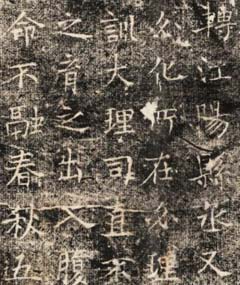 轉江陽縣丞又
化所在必理
訓大理司直不
之育之出入腹
命不融春秋五